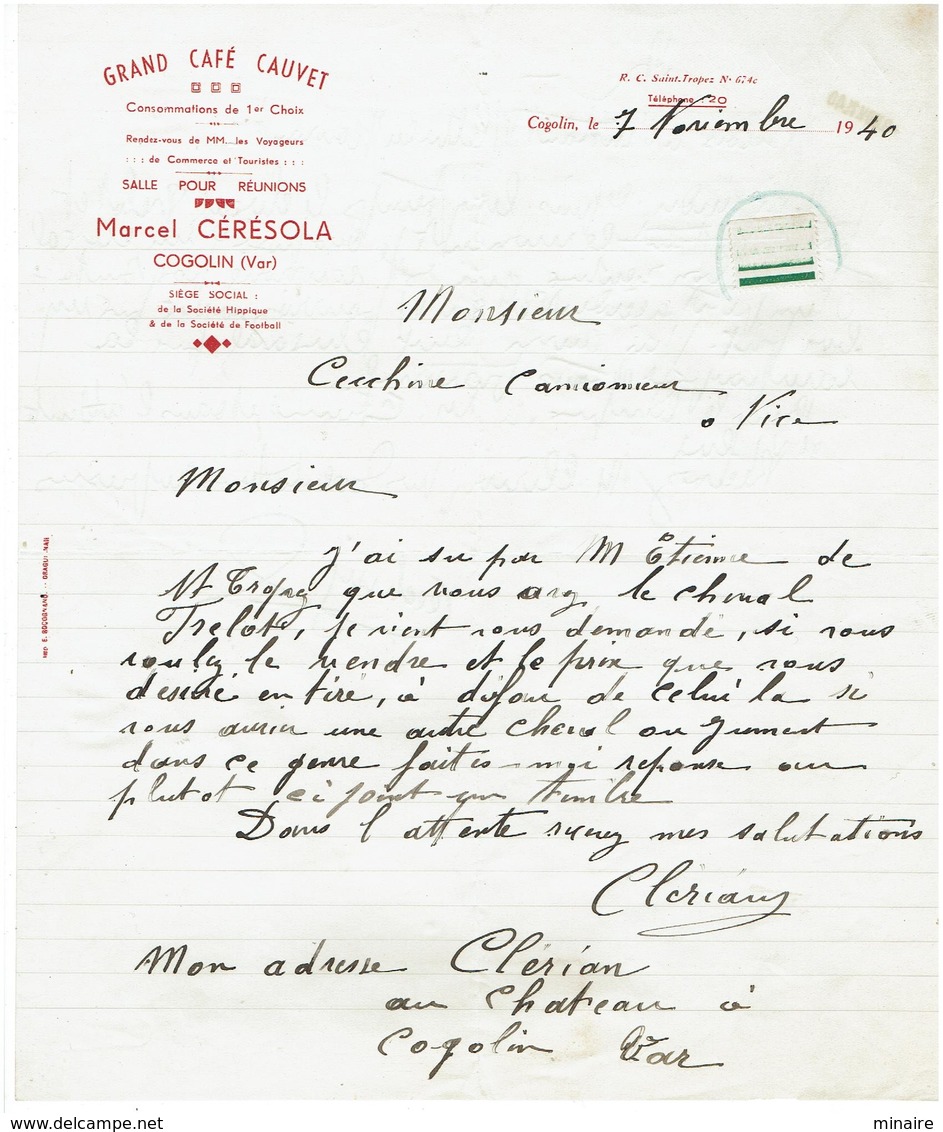 GRAND CAFÉ CAUVET
Consommations de 1er Choix
Rendez-vous de MM. les Voyageurs
: : : de Commerce et Touristes : : :
SALLE POUR RÉUNIONS
Marcel CÉRÉSOLA
COGOLIN (Var)
SIÈGE SOCIAL :
de la Société Hippique
& de la Société de Football
R. C. Saint-Tropez No 674c
Téléphone : 20
Cogolin, le 7 Novembre 1940
Monsieur
Cecchine Camionneur
a Nice
Monsieur
J'ai su par Mr Etienne de
St Tropez que vous avez le cheval
Trelote, je vient vous demandé, si vous
voulez le vendre et le prix que vous
desiré en tiré, à défau de celui la si
vous auriez une autre cheval ou jument
dans ce genre faites-moi reponse au
plutot ci joint un timbre
Dans l'attente recevez mes salutations
Clérian
Mon adresse Clérian
au Chateau à
Cogolin Var
IMP. E. BOCOGNANO. - DRAGUIGNAN
minaire